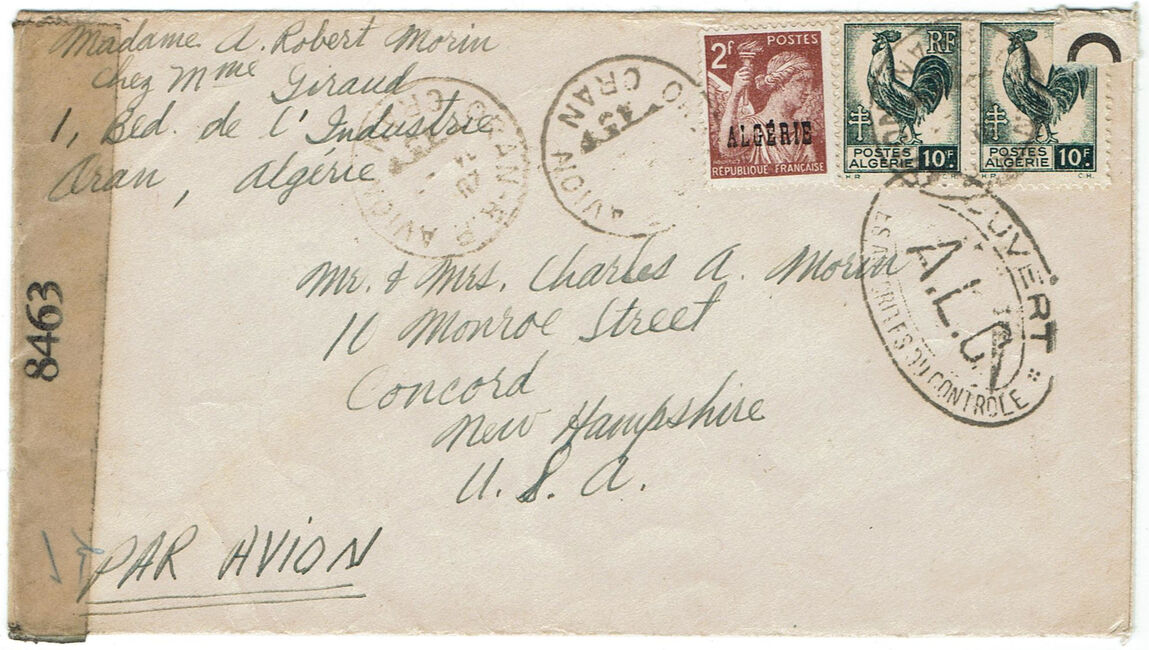 Madame A. Robert Morin
Chez Mme Giraud
1, Bld. de l'Industrie
Oran, Algérie
2f POSTES
ALGÉRIE
RÉPUBLIQUE FRANÇAISE
RF
POSTES
ALGÉRIE 10F
H.R. C.H.
POSTES
ALGÉRIE 10F
H.R. C.H.
ORAN
AVION
ORAN
AVION
OUVERT
A.L.C.
CONTROLE
Mr. & Mrs. Charles A. Morin
10 Monroe Street
Concord
New Hampshire
U.S.A.
8463
PAR AVION